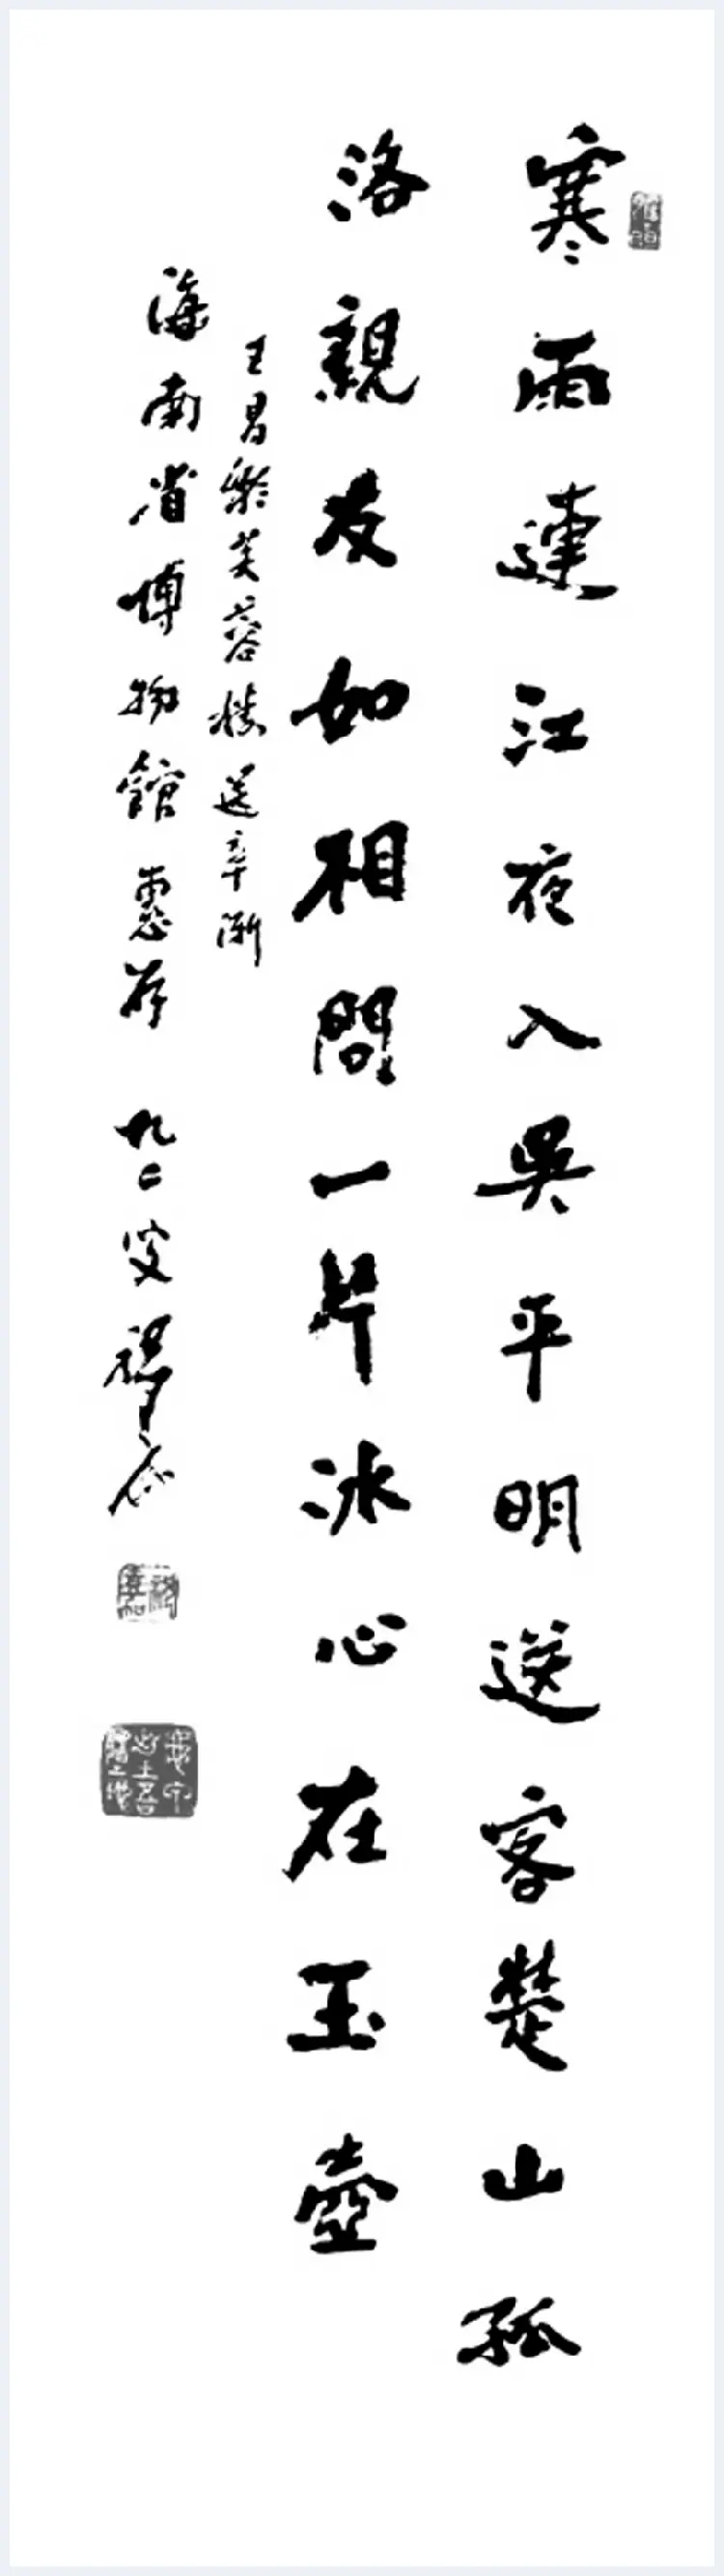 寒雨連江夜入吳平明送客楚山孤
洛親友如相問一片冰心在玉壺
王昌齡芙蓉樓送辛漸
海南省博物館惠存 九二叟